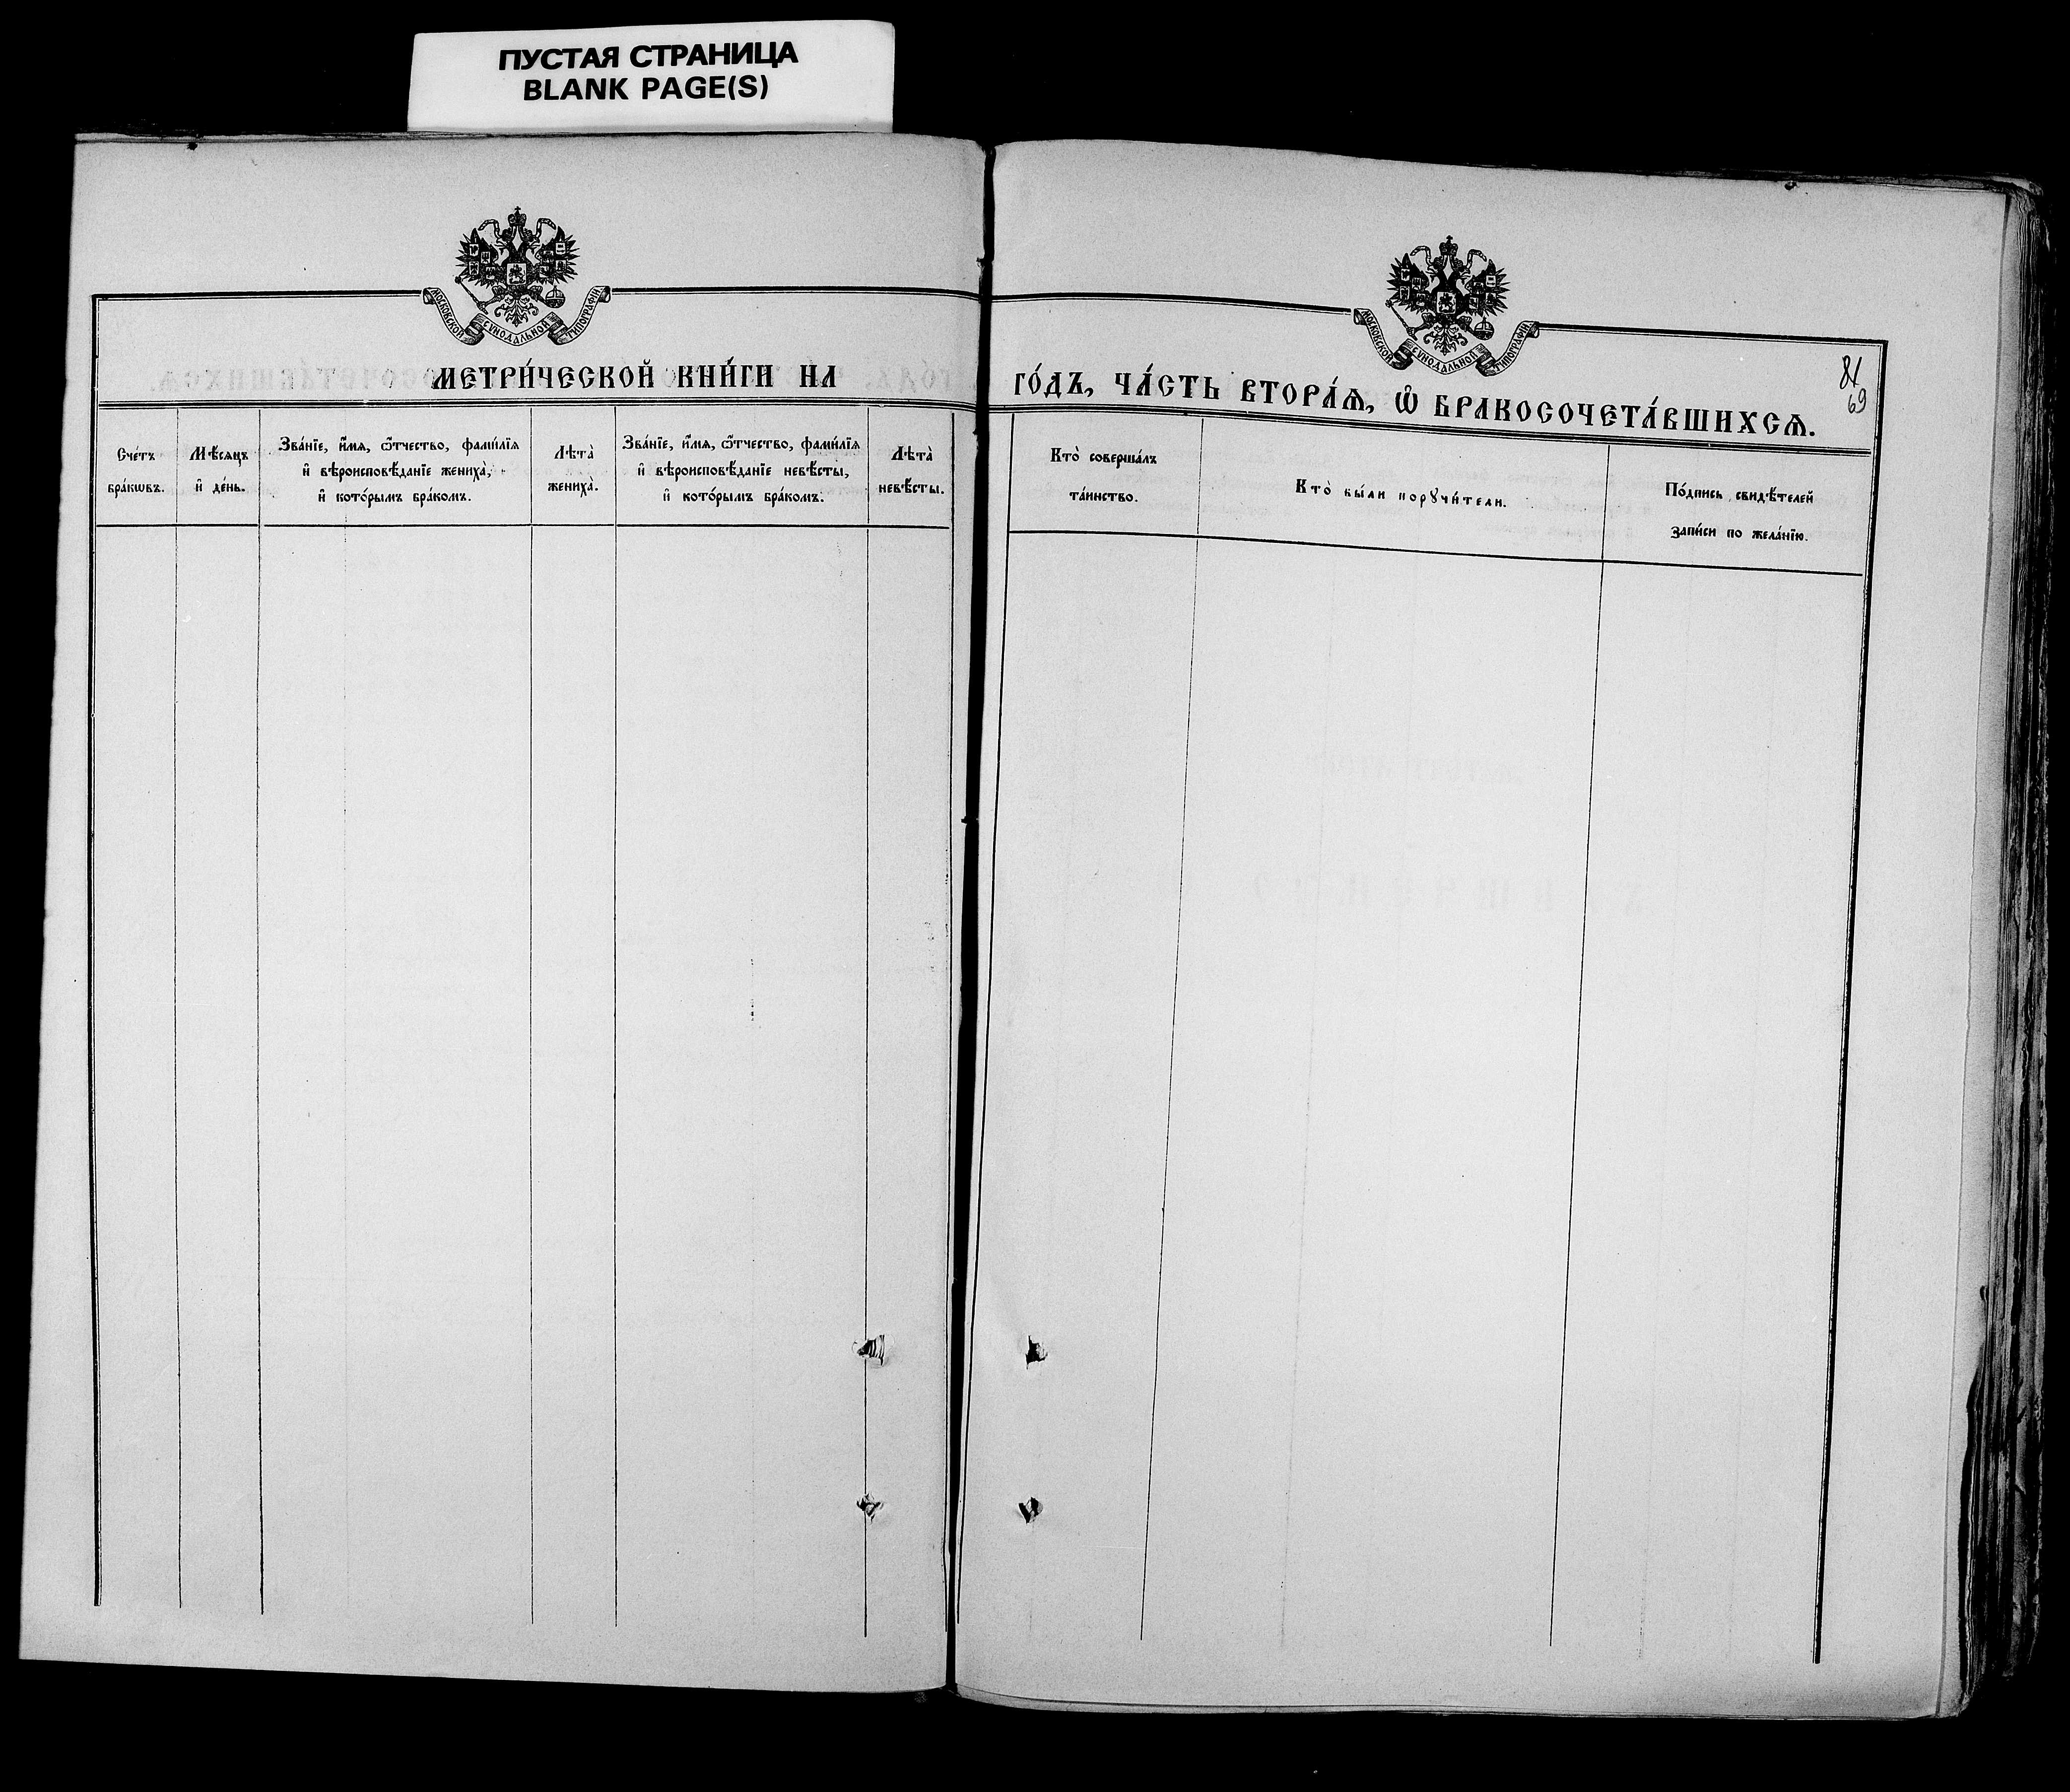 ПУСТАЯ СТРАНИЦА
BLANK PAGE(S)
МОСКОВСКОЙ СѴНОДАЛЬНОЙ ТИПОГРАФІИ
МЕТРИ́ЧЕСКОЙ КНИ́ГИ НА
Сче́тъ
бра́кѡвъ.
Мѣ́сяцъ
и҆ де́нь.
Зва́нїе, и҆́мѧ, ѻ҆́тчество, фами́лїѧ
и҆ вѣроисповѣ́данїе жениха̀,
и҆ кото́рымъ бра́комъ.
Лѣта̀
жениха̀.
Зва́нїе, и҆́мѧ, ѻ҆́тчество, фами́лїѧ
и҆ вѣроисповѣ́данїе невѣ́сты,
и҆ кото́рымъ бра́комъ.
Лѣта̀
невѣ́сты.
МОСКОВСКОЙ СѴНОДАЛЬНОЙ ТИПОГРАФІИ
81
69
ГО́ДЪ, ЧА́СТЬ ВТОРА́Ѧ, Ѽ БРАКОСОЧЕТА́ВШИХСѦ.
Кто̀ соверша́лъ
та́инство.
Кто̀ бы́ли порꙋчи́тели.
По́дпись свидѣ́телей
за́писи по жела́нїю.